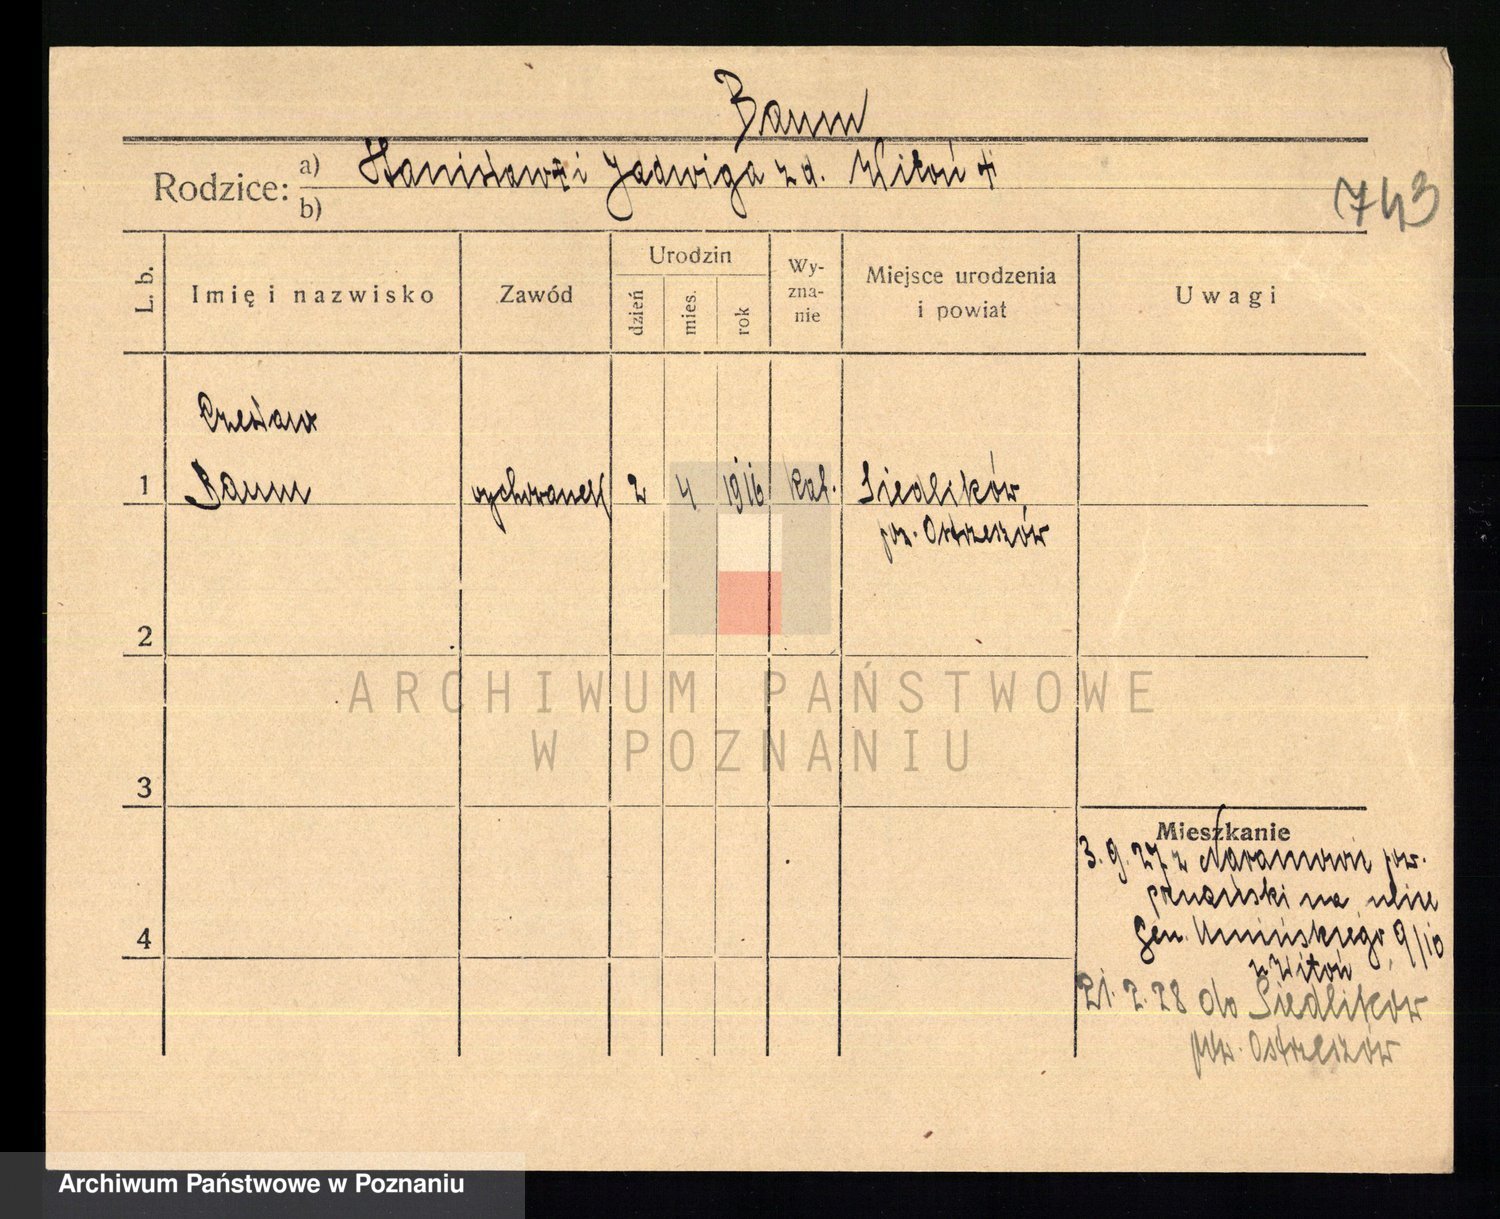 Baum
Rodzice: a) Stanisław + i Jadwiga z d. Witoń +
b)
743
L. b.
Imię i nazwisko
Zawód
Urodzin
dzień
mies.
rok
Wy-
zna-
nie
Miejsce urodzenia
i powiat
Uwagi
Czesław
1 Baum wychowanek 2 4 1916 kat. Siedlików
pow. Ostrzeszów
2
ARCHIWUM PAŃSTWOWE
W POZNANIU
3
Mieszkanie
3. 9. 27 z Naramowic pow.
poznański na ulicę
4
Gen. Umińskiego 9/10
u Witoń
21. 2. 28 do Siedlików
pow. Ostrzeszów
Archiwum Państwowe w Poznaniu